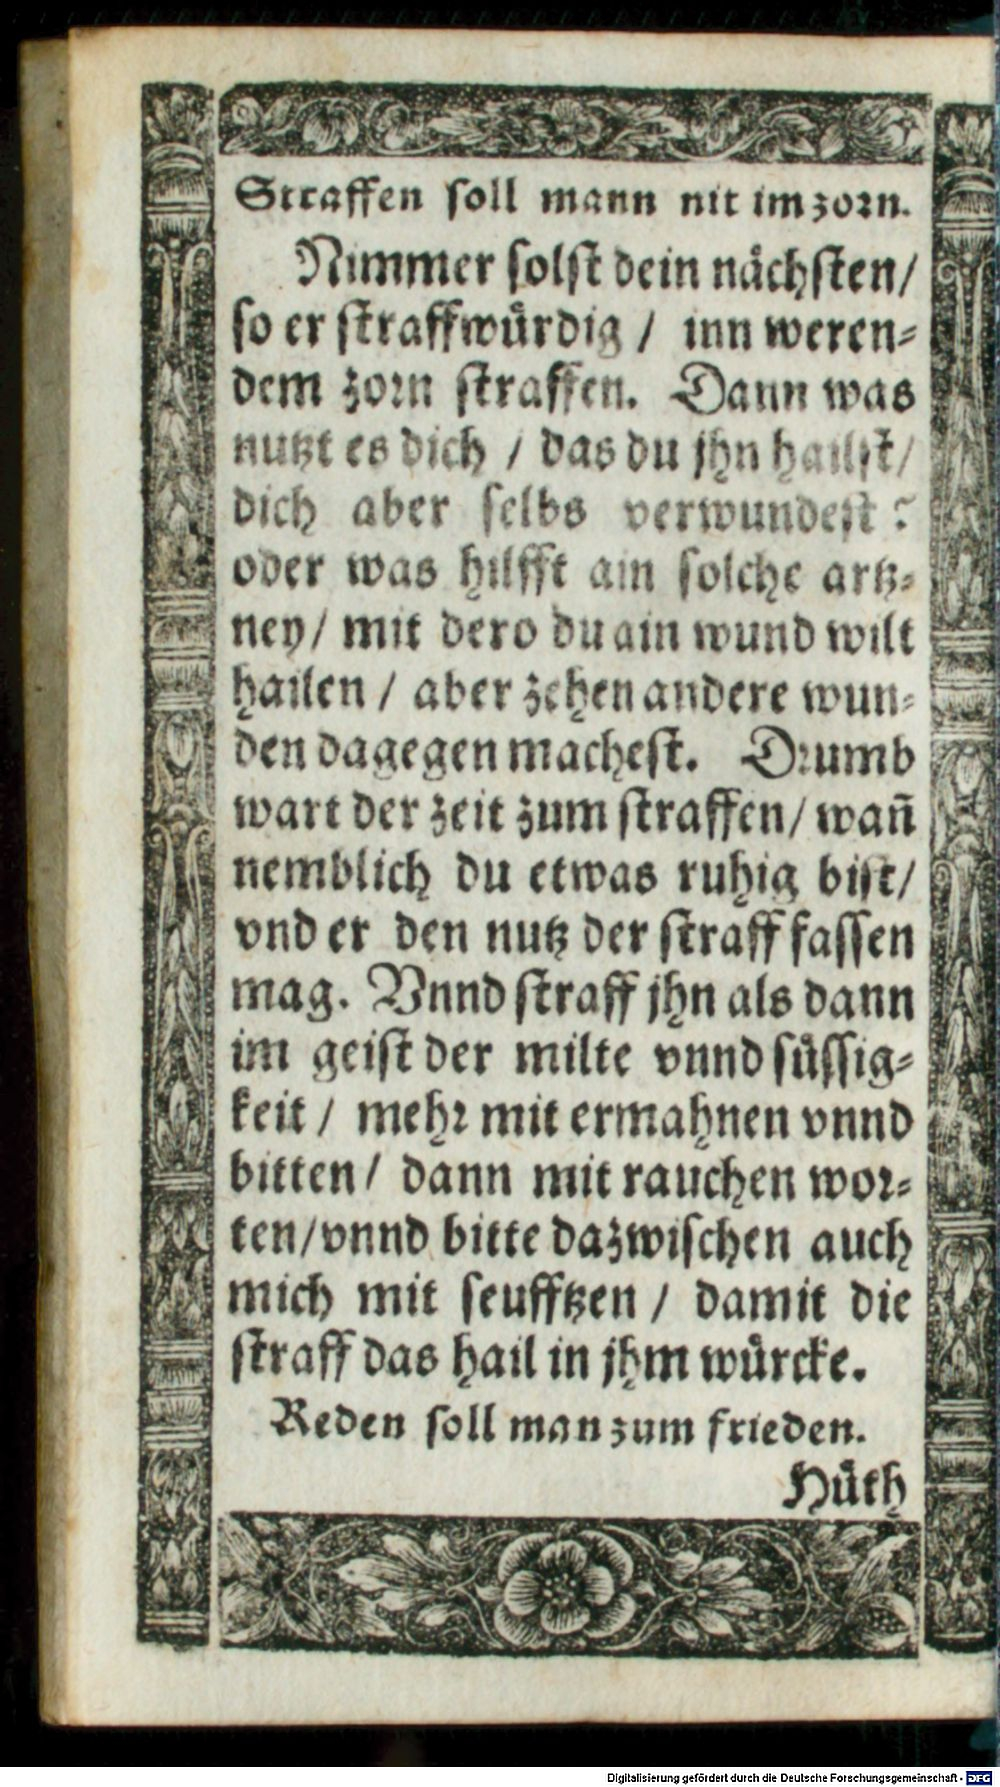 Straffen soll mann nit im zorn.
Nimmer solst dein nächsten/
so er straffwürdig / inn weren-
dem zorn straffen. Dann was
nutzt es dich / das du jhn hailst/
dich aber selbs verwundest?
oder was hilfft ain solche artz-
ney/ mit dero du ain wund wilt
hailen / aber zehen andere wun-
den dagegen machest. Drumb
wart der zeit zum straffen/ wañ
nemblich du etwas ruhig bist/
vnd er den nutz der straff fassen
mag. Vnnd straff jhn als dann
im geist der milte vnnd süssig-
keit / mehr mit ermahnen vnnd
bitten/ dann mit rauchen wor-
ten/vnnd bitte dazwischen auch
mich mit seufftzen / damit die
straff das hail in jhm würcke.
Reden soll man zum frieden.
Hüth
Digitalisierung gefördert durch die Deutsche Forschungsgemeinschaft - DFG